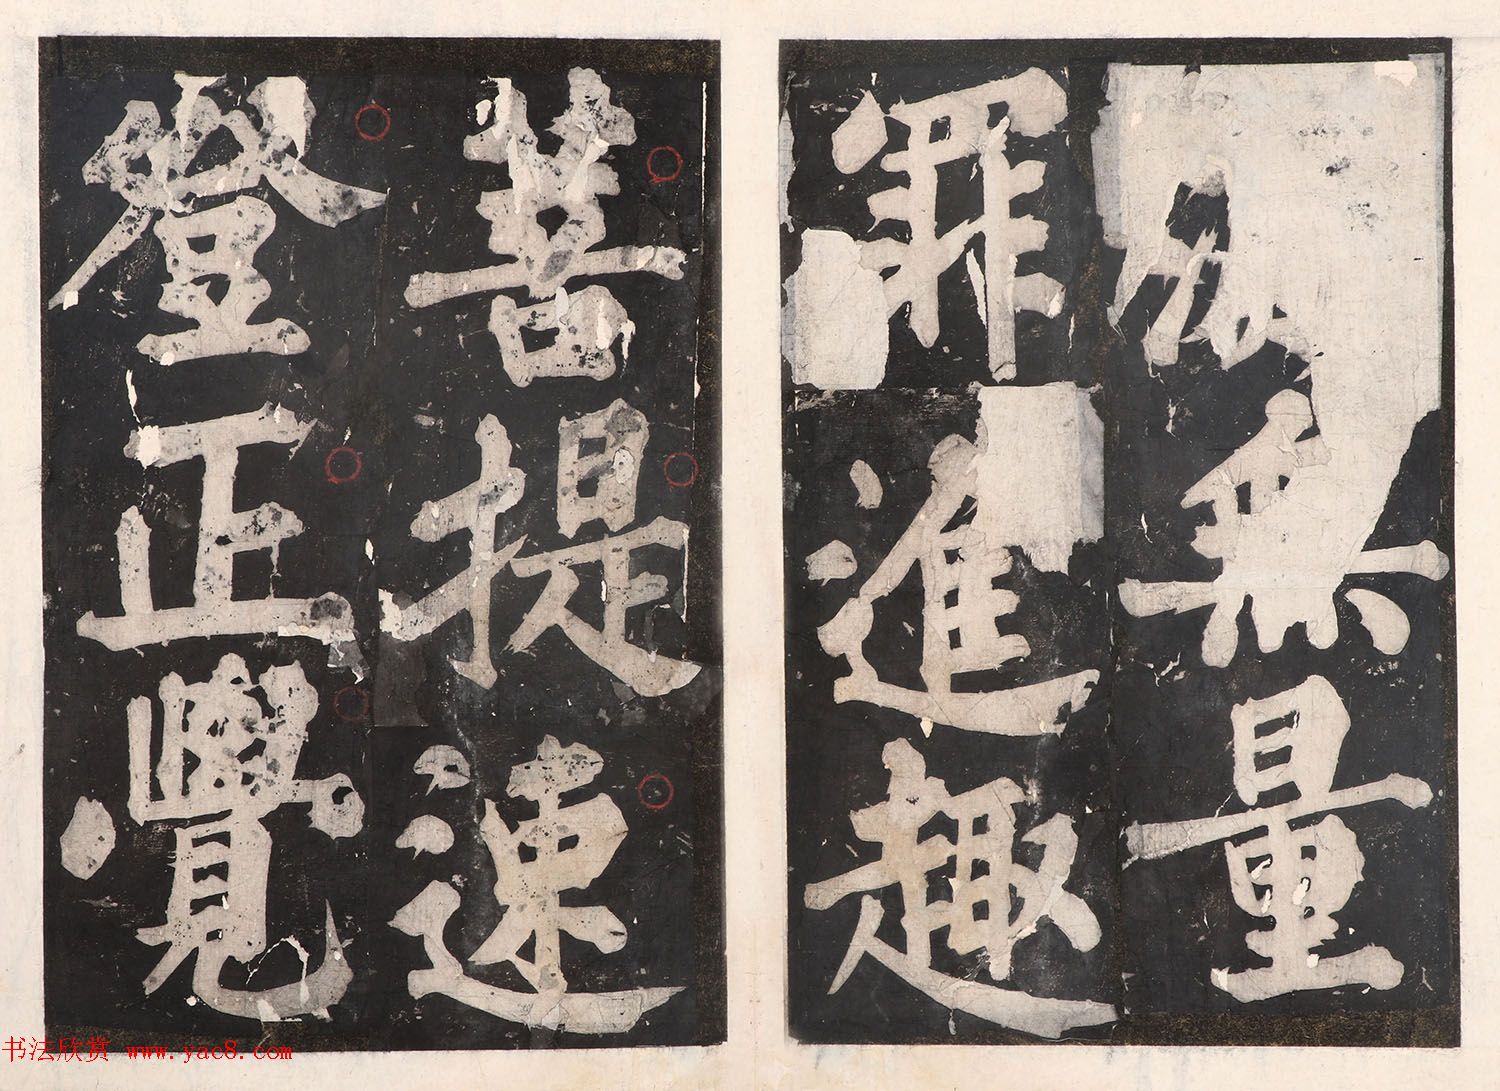 無量
罪進趣
菩提速
登正覺
书法欣赏 www.yac8.com